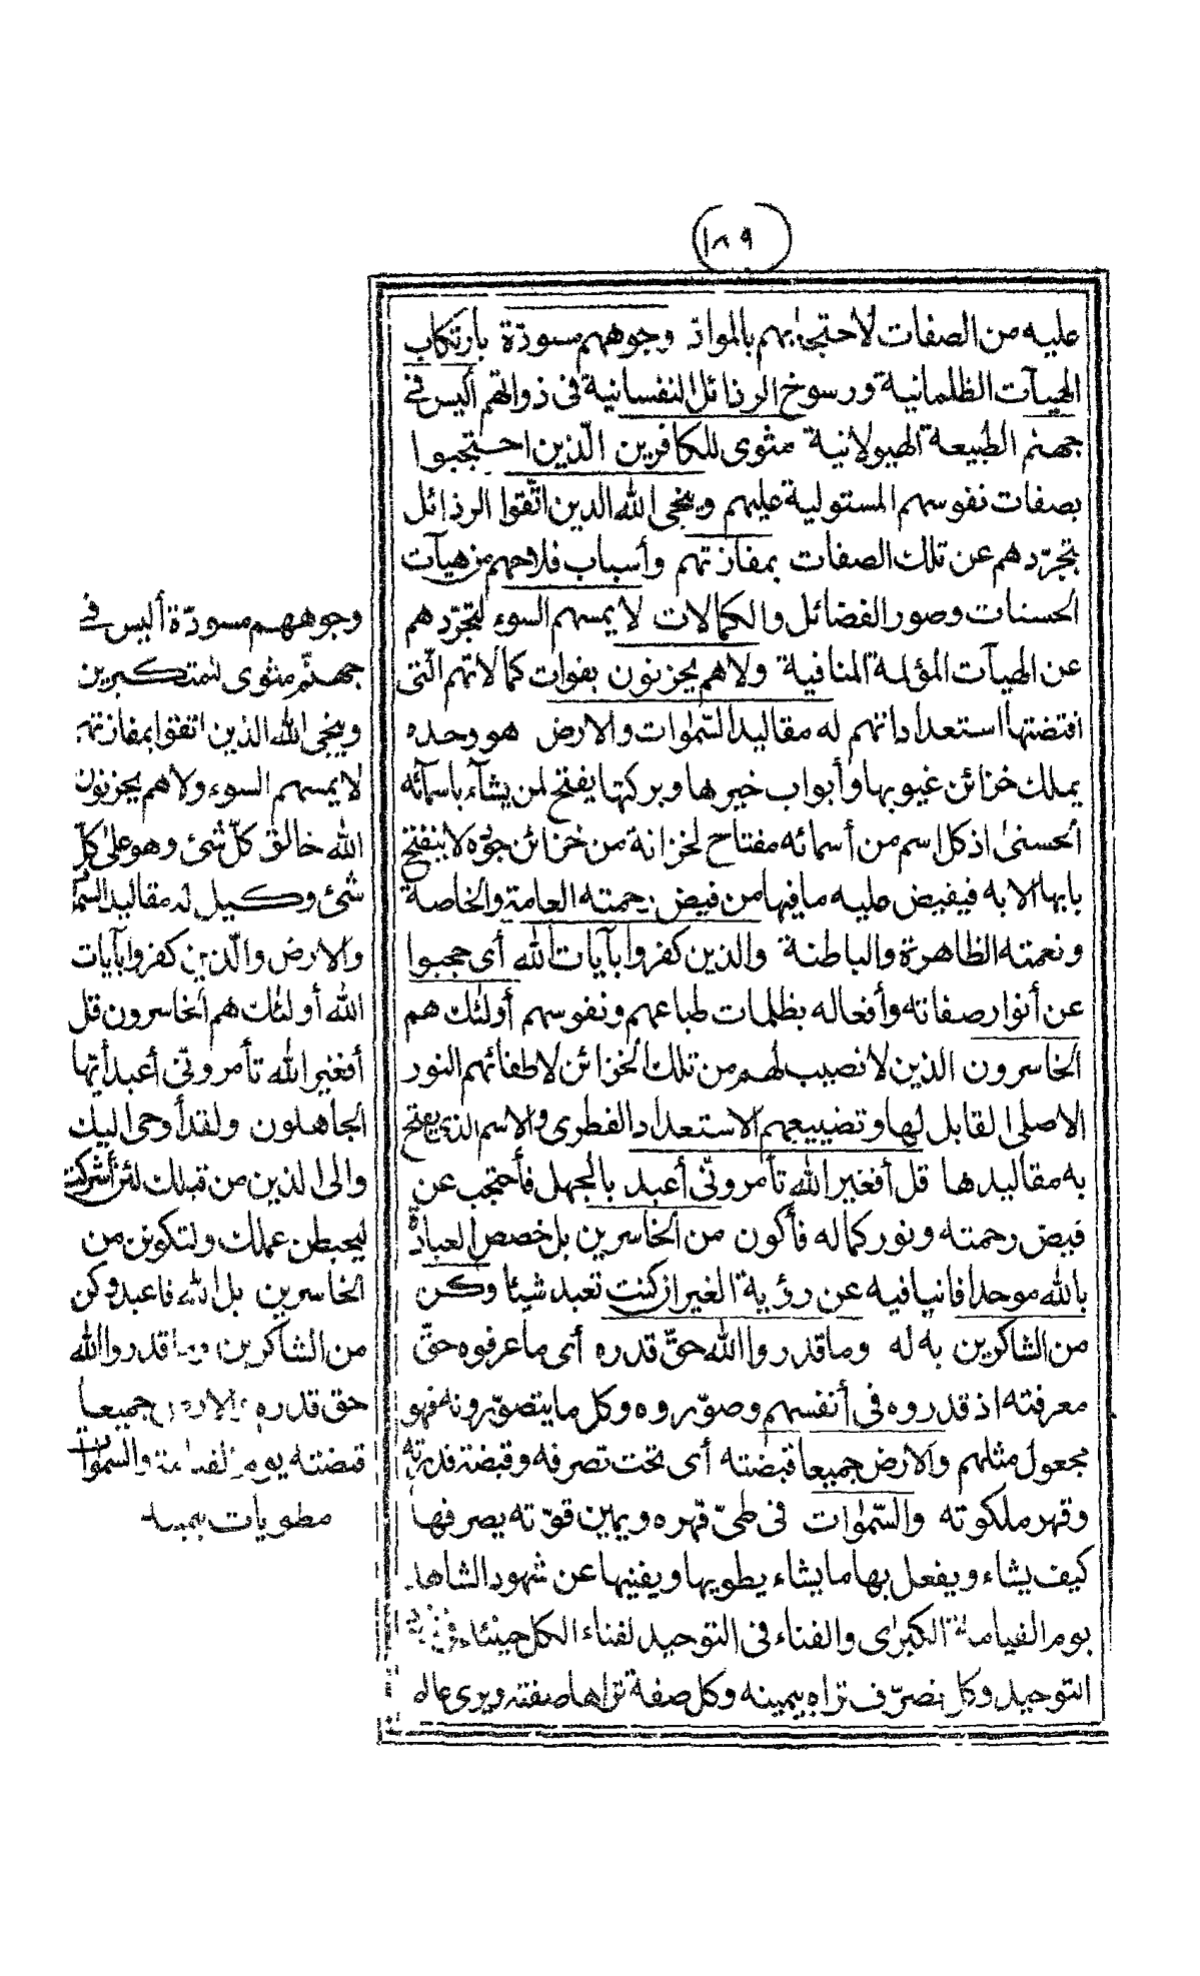 (١٨٩)
عليه من الصفات لاحتجابهم بالمواد وجوههم مسودة بارتكاب
الهيآت الظلمانية ورسوخ الرذائل النفسانية فى ذواتهم أليس فى
جهنم الطبيعة الهيولانية مثوى للكافرين الّذين احتجبوا
بصفات نفوسهم المستولية عليهم وينجى الله الدين اتّقوا الرذائل
بتجرّدهم عن تلك الصفات بمفازتهم وأسباب فلاحهم من هيآت
الحسنات وصور الفضائل والكمالات لا يمسهم السوء لتجرّدهم
عن الهيآت المؤلمة المنافية ولاهم يحزنون بفوات كمالاتهم الّتى
اقتضتها استعداداتهم له مقاليد السّموات والارض هو وحده
يملك خزائن غيوبها وأبواب خيرها وبركتها يفتح لمن يشآء باسمآئه
الحسنى اذ كل اسم من أسمائه مفتاح لخزانة من خزائن جوده لا ينفتح
بابها الا به فيفيض عليه ما فيها من فيض رحمته العامة والخاصة
ونعمته الظاهرة والباطنة والذين كفروا بآيات الله أى حجبوا
عن أنوار صفاته وأفعاله بظلمات طباعهم ونفوسهم أولئك هم
الخاسرون الذين لا نصيب لهم من تلك الخزائن لاطفائهم النور
الاصلى القابل لها وتضييعهم الاستعداد الفطرى والاسم الذى يفتح
به مقاليدها قل أفغير الله تأمرونّى أعبد بالجهل فأحتجب عن
فيض رحمته ونور كماله فأكون من الخاسرين بل خصص العبادة
بالله موحدا فانيا فيه عن رؤية الغير ان كنت تعبد شيئا وكن
من الشاكرين به له وما قدروا الله حقّ قدره أى ما عرفوه حقّ
معرفته اذ قدروه فى أنفسهم وصوّروه وكل ما يتصوّرونه فهو
مجعول مثلهم والارض جميعا قبضته أى تحت تصرفه وقبضة قدرته
وقهر ملكوته والسّموات فى طىّ قهره ويمين قوّته يصرفها
كيف يشاء ويفعل بها ما يشاء يطويها ويفنيها عن شهود الشاهد
يوم القيامة الكبرى والفناء فى التوحيد لفناء الكل حينئذ فى
التوحيد وكل تصرّف تراه بيمينه وكل صفة تراها صفته ويرى عالم
وجوههم مسودّة أليس فى
جهنّم مثوى للمتكبرين
وينجى الله الذين اتقوا بمفازتهم
لا يمسهم السوء ولاهم يحزنون
الله خالق كلّ شئ وهو على كلّ
شئ وكيل له مقاليد السّموات
والارض والّذين كفروا بآيات
الله أولئك هم الخاسرون قل
أفغير الله تأمرونّى أعبد أيّها
الجاهلون ولقد أوحى اليك
والى الذين من قبلك لئن أشركت
ليحبطن عملك ولتكونن من
الخاسرين بل الله فاعبد وكن
من الشاكرين وما قدروا الله
حق قدره والارض جميعا
قبضته يوم القيامة والسّموات
مطويات بيمينه